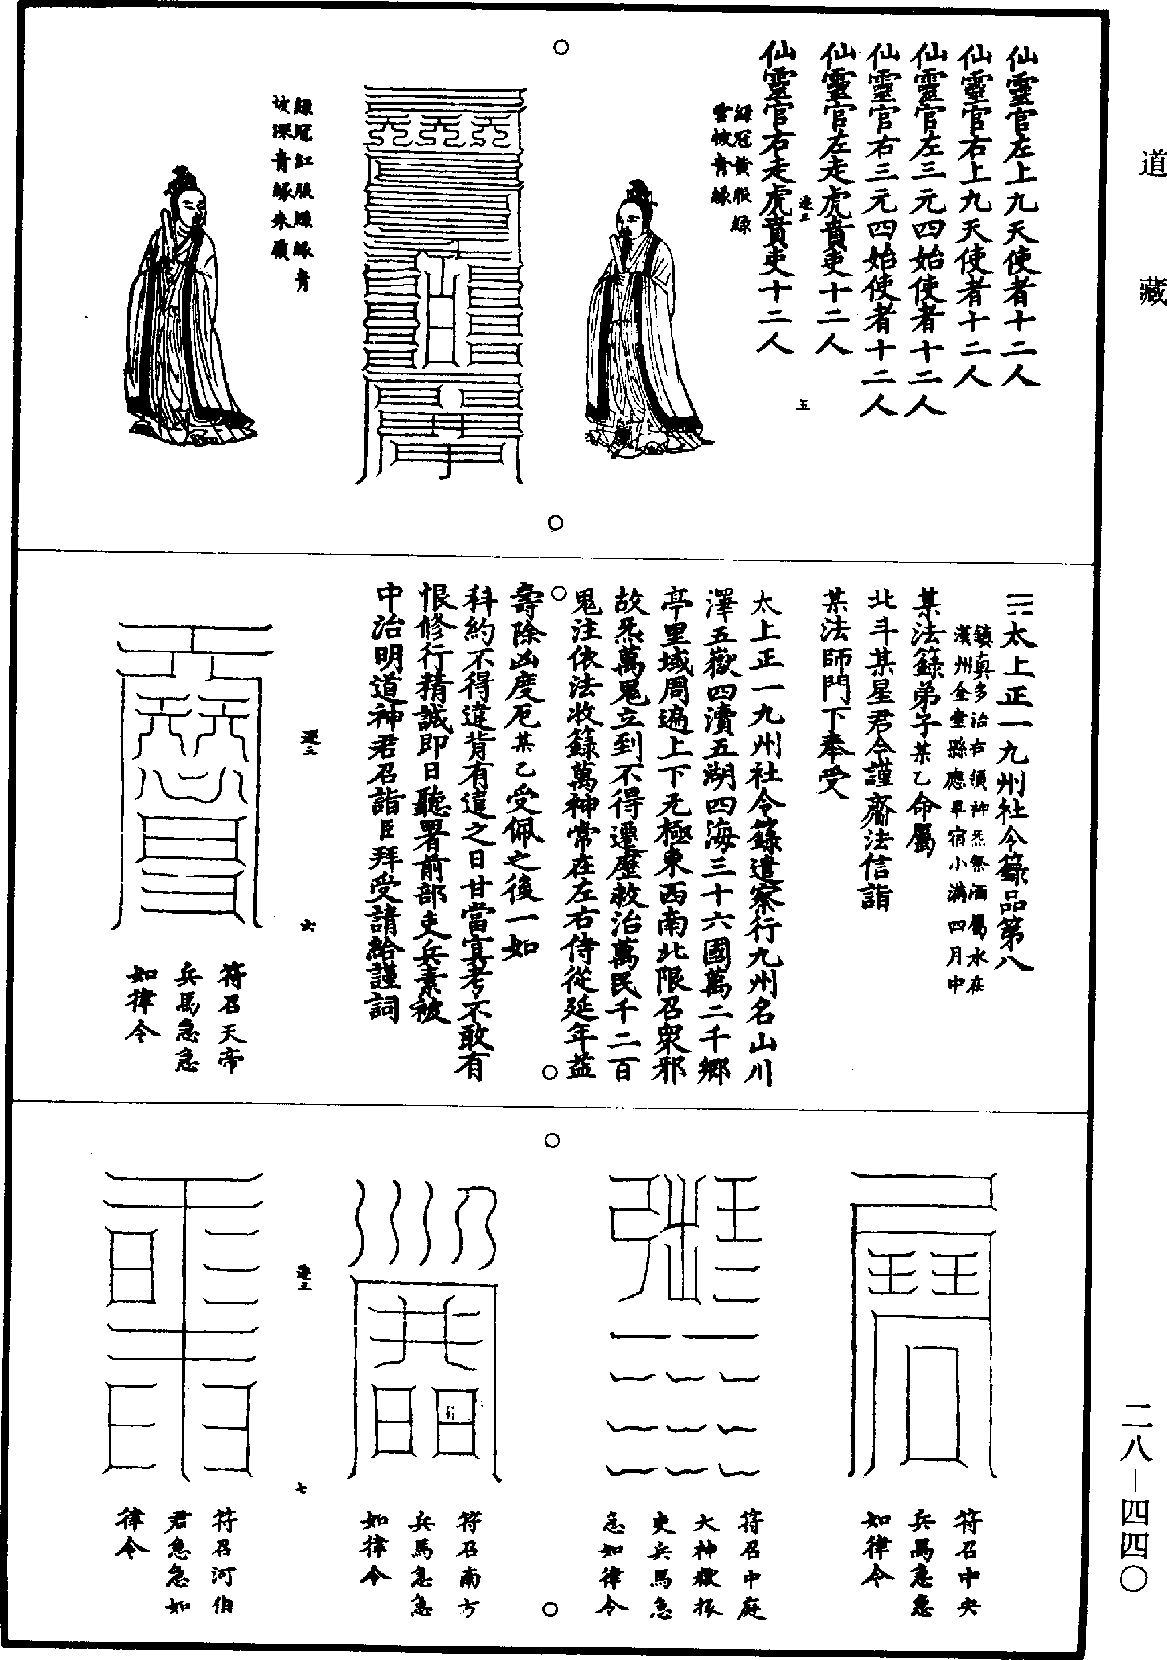 道藏
仙靈官左上九天使者十二人
仙靈官右上九天使者十二人
仙靈官左三元四始使者十二人
仙靈官右三元四始使者十二人
仙靈官左走虎賁吏十二人
五
仙靈官右走虎賁吏十二人
綠冠黃服綠
雲帔青緣
綠冠紅服綠緣青
帔深青緣朱履
太上正一九州社令籙品第八
鎮真多治右領神炁祭酒屬水在
漢州金堂縣應畢宿小滿四月中
某法籙弟子某乙命屬
北斗某星君今謹齎法信詣
某法師門下奉受
太上正一九州社令籙遣察行九州名山川
澤五嶽四瀆五湖四海三十六國萬二千鄉
亭里域周遍上下无極東西南北限召衆邪
故炁萬鬼立到不得遷歷救治萬民千二百
鬼注依法收籙萬神常在左右侍從延年益
壽除凶度厄某乙受佩之後一如
科約不得違背有違之日甘當冥考不敢有
恨修行精誠即日聽署前部吏兵素被
中治明道神君召詣臣拜受請給謹詞
六
符召天帝
兵馬急急
如律令
符召中央
兵馬急急
如律令
符召中庭
大神
吏兵馬急
急如律令
符召南方
兵馬急急
如律令
七
符召河伯
君急急如
律令
二八—四四〇